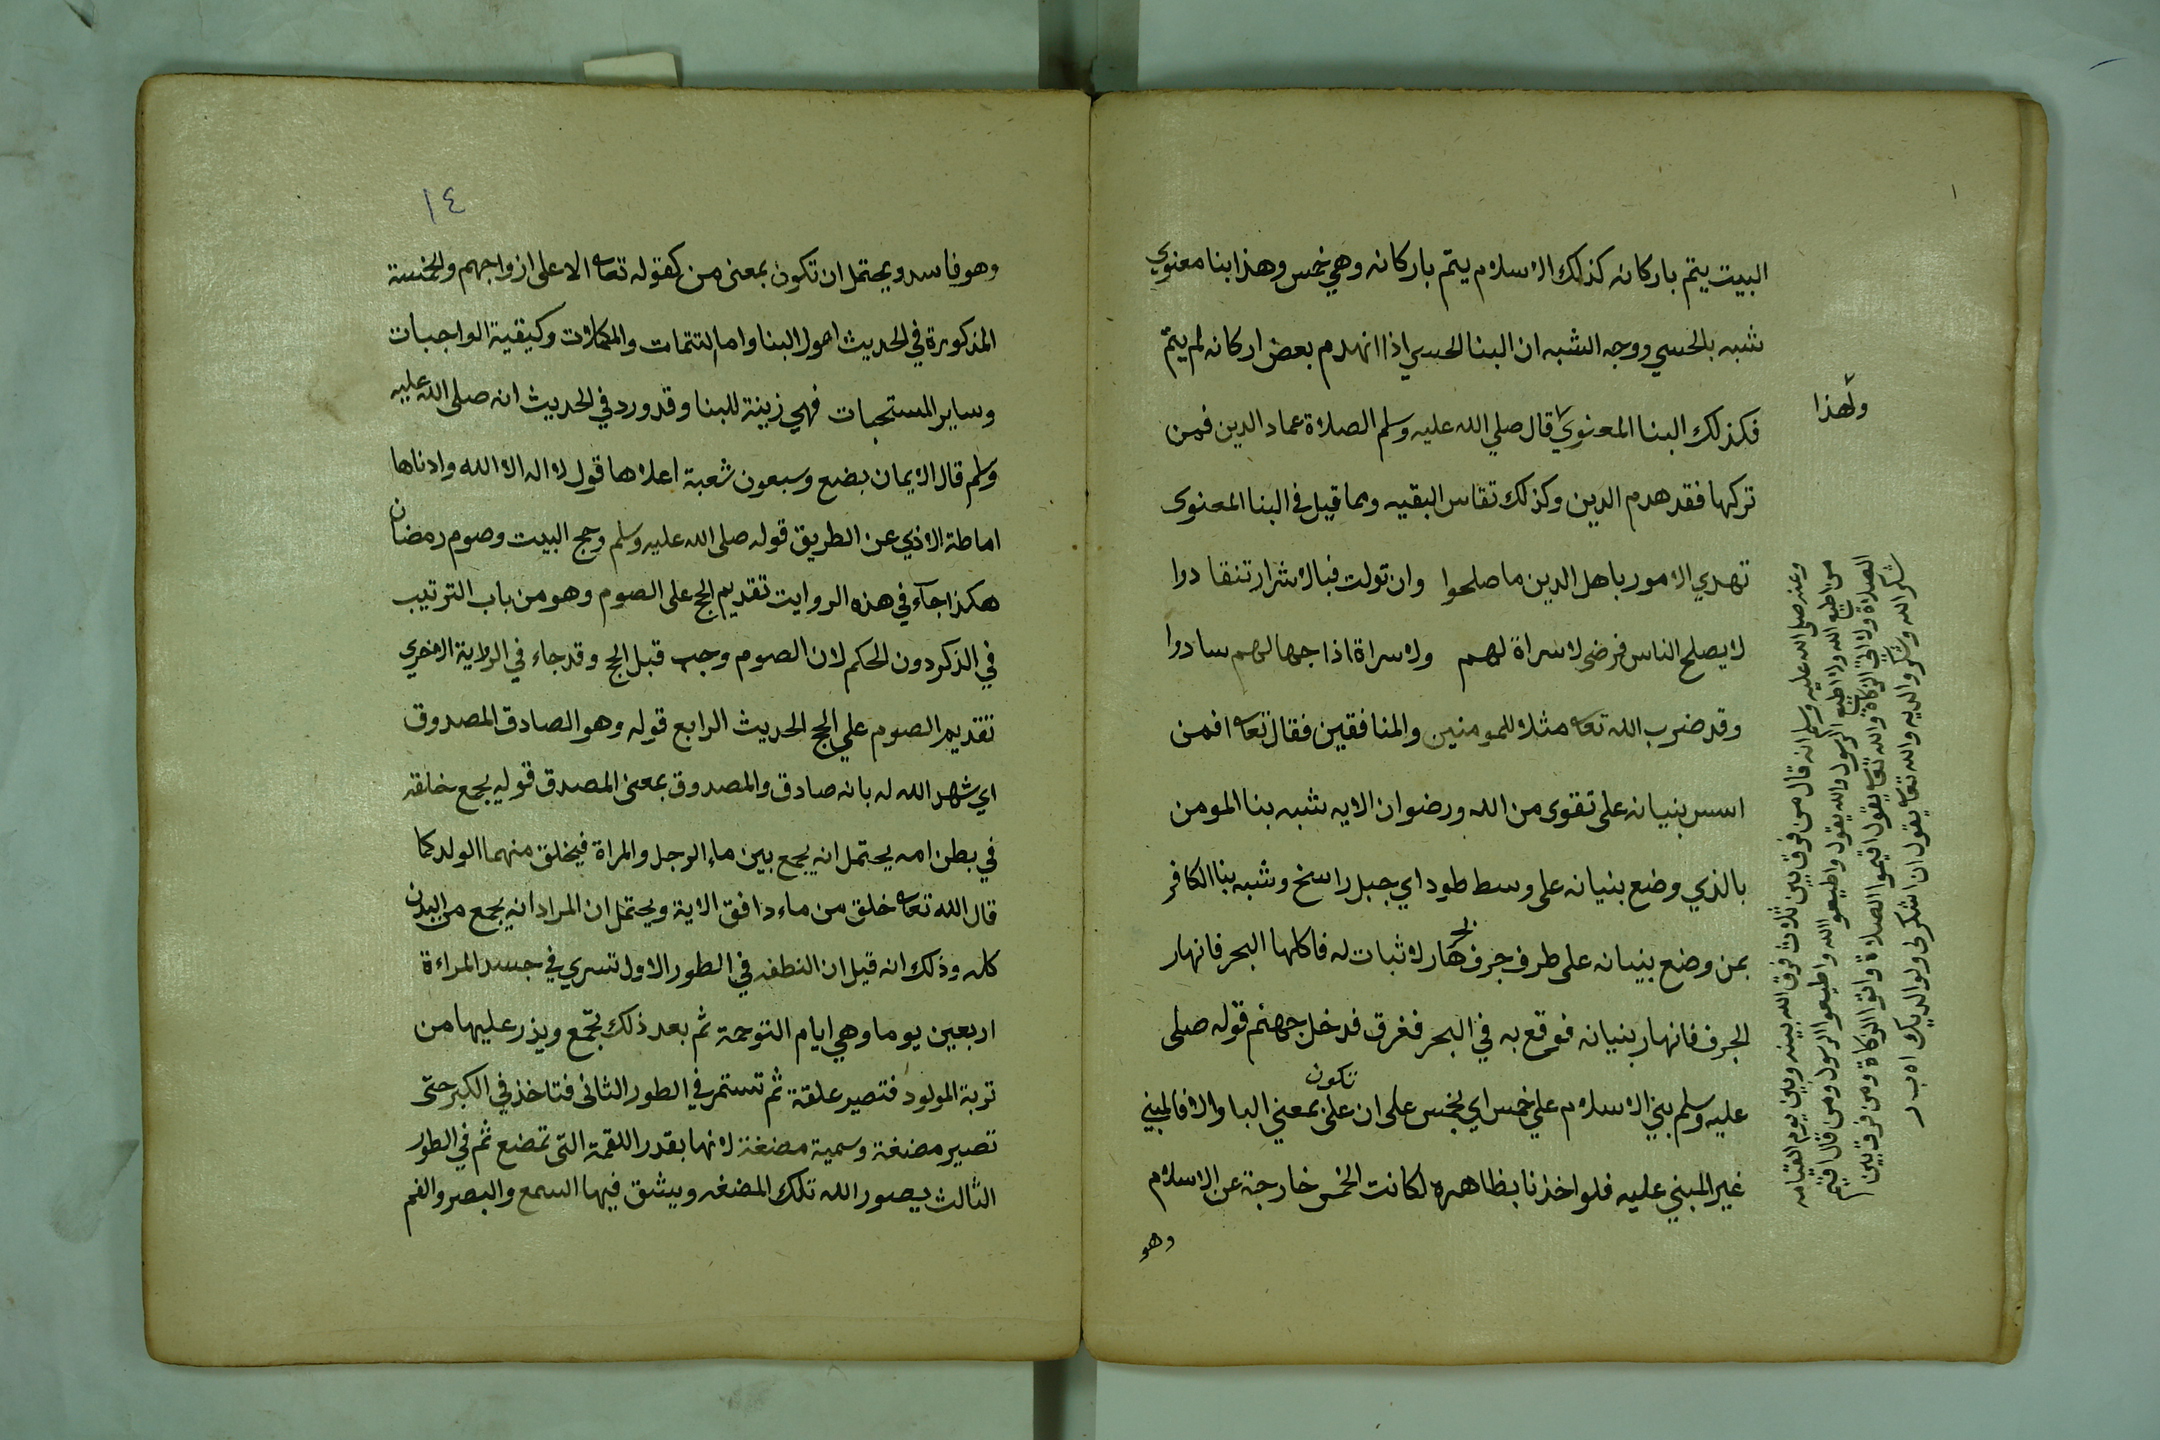 البيت يتم باركانه كذلك الاسلام يتم باركانه وهي خمس وهذا بنا معنوي
شبه بالحسي ووجه الشبه ان البنا الحسي اذا انهدم بعض اركانه لم يتم
فكذلك البنا المعنوي قال صلي الله عليه وسلم الصلاة عماد الدين فمن
ولهذا
تركها فقد هدم الدين وكذلك تقاس البقيه ومما قيل في البنا المعنوى
تهدي الامور باهل الدين ما صلحوا وان تولت فبالاشرار تنقادوا
لا يصلح الناس فرضى لا سراة لهم ولا سراة اذا جهالهم سادوا
وقد ضرب الله تعا مثلا للمومنين والمنافقين فقال تعا افمن
اسس بنيانه على تقوى من الله ورضوان الايه شبه بنا المومن
بالذي وضع بنيانه على وسط طود اي جبل راسخ وشبه بنا الكافر
بمن وضع بنيانه على طرف جرف بحر هار لا ثبات له فاكلها البحر فانهار
الجرف فانهار بنيانه فوقع به في البحر فغرق فدخل جهنم قوله صلى
عليه وسلم بني الاسلام علي خمس اي بخمس على ان تكون على بمعني البا والا فالمبني
غير المبني عليه فلو اخذنا بظاهره لكانت الخمس خارجة عن الاسلام
وهو
وعنه صلى الله عليه وسلم انه قال من فرق بين ثلاث فرق الله بينه وبين يوم القيامه
من اطيع الله ولا اطيع الرسول والله يقول واطيعوا الله واطيعوا الرسول ومن قال اقيم
الصلاة ولا اتي الزكاة والله تعا يقول اقيموا الصلاة واتوا الزكاة ومن فرق بين
شكر الله وشكر والديه والله تعا يقول ان اشكر لي ولوالديك اه ب ر
١٤
وهو فاسد ويحتمل ان تكون بمعنى من كقوله تعا الا على ازواجهم والخمسة
المذكورة في الحديث اصول البنا واما التتمات والمكملات وكيقية الواجبات
وساير المستحبات فهي زينة للبنا وقد ورد في الحديث انه صلى الله عليه
وسلم قال الايمان بضع وسبعون شعبة اعلاها قول لا اله الا الله وادناها
اماطة الاذي عن الطريق قوله صلى الله عليه وسلم وحج البيت وصوم رمضان
هكذا جآء في هذه الروايت تقديم الحج على الصوم وهو من باب الترتيب
في الذكر دون الحكم لان الصوم وجب قبل الحج وقد جاء في الرلاية الاخري
تقديم الصوم علي الحج الحديث الرابع قوله وهو الصادق المصدوق
اي شهد الله له بانه صادق والمصدوق بمعنى المصدق قوله يجمع خلقه
في بطن امه يحتمل انه يجمع بين ماء الرجل والمراة فيخلق منهما الولد كما
قال الله تعا خلق من ماء دافق الاية ويحتمل ان المراد انه يجمع من البدن
كله وذلك انه قيل ان النطفه في الطور الاول تسري في جسد المراءة
اربعين يوما وهي ايام التوحمة ثم بعد ذلك تجمع ويذر عليها من
تربة المولود فتصير علقة ثم تستمر في الطور الثانى فتاخذ في الكبر حتى
تصير مضغة وسمية مضغة لانها بقدر اللقمة التى تمضع ثم في الطور
الثالث يصور الله تلك المضغه ويشق فيها السمع والبصر والفم